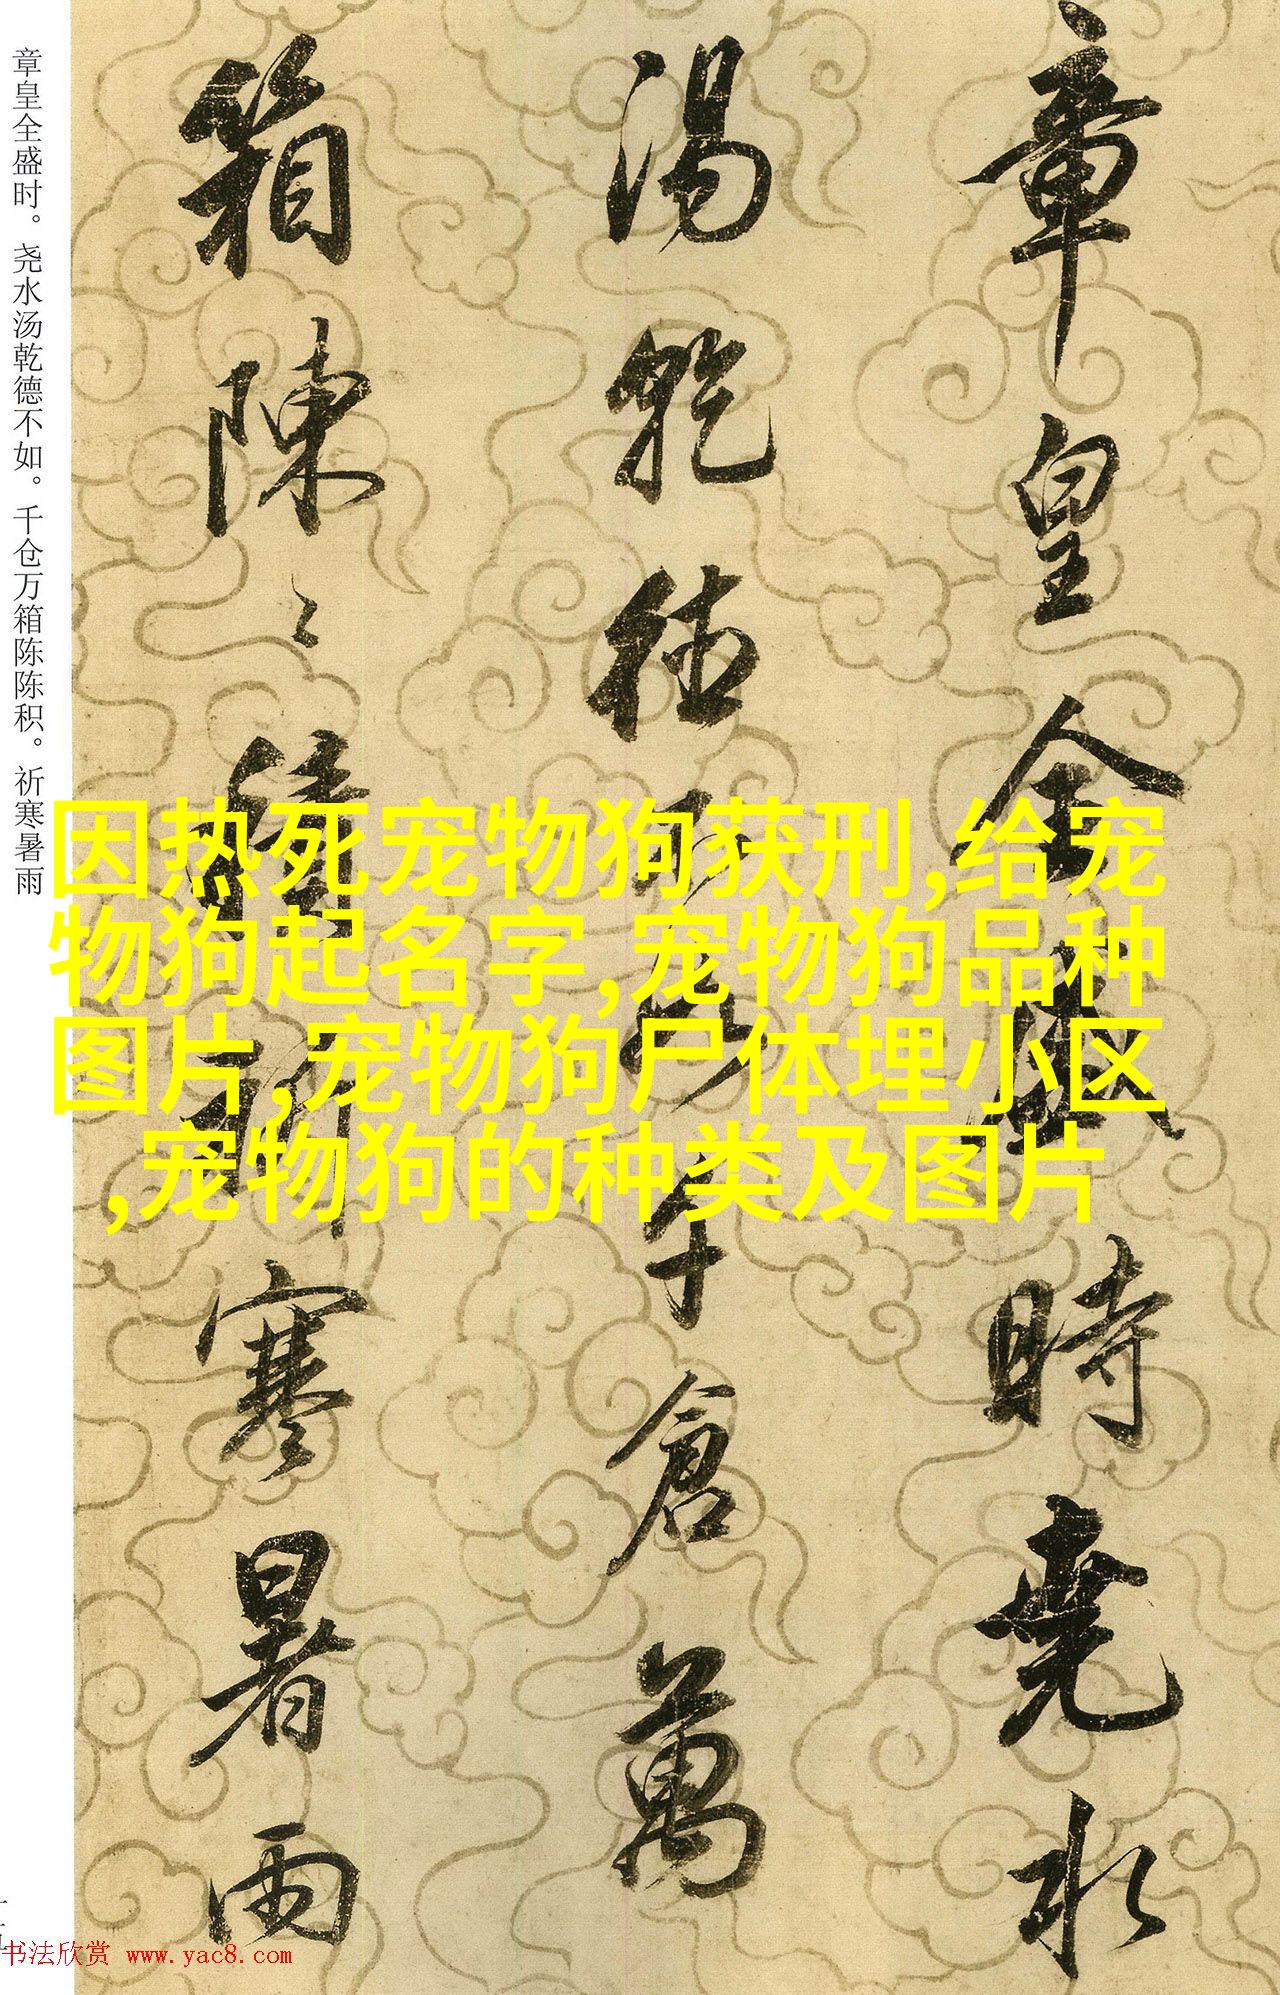 章皇全盛時堯水
湯乾德不如千倉萬
箱陳〻積祈寒暑雨
章皇全盛时。尧水汤乾德不如。千仓万箱陈陈积。祈寒暑雨
因热死宠物狗获刑,给宠
物狗起名字,宠物狗品种
图片,宠物狗尸体埋小区
,宠物狗的种类及图片
书法欣赏 www.yac8.com